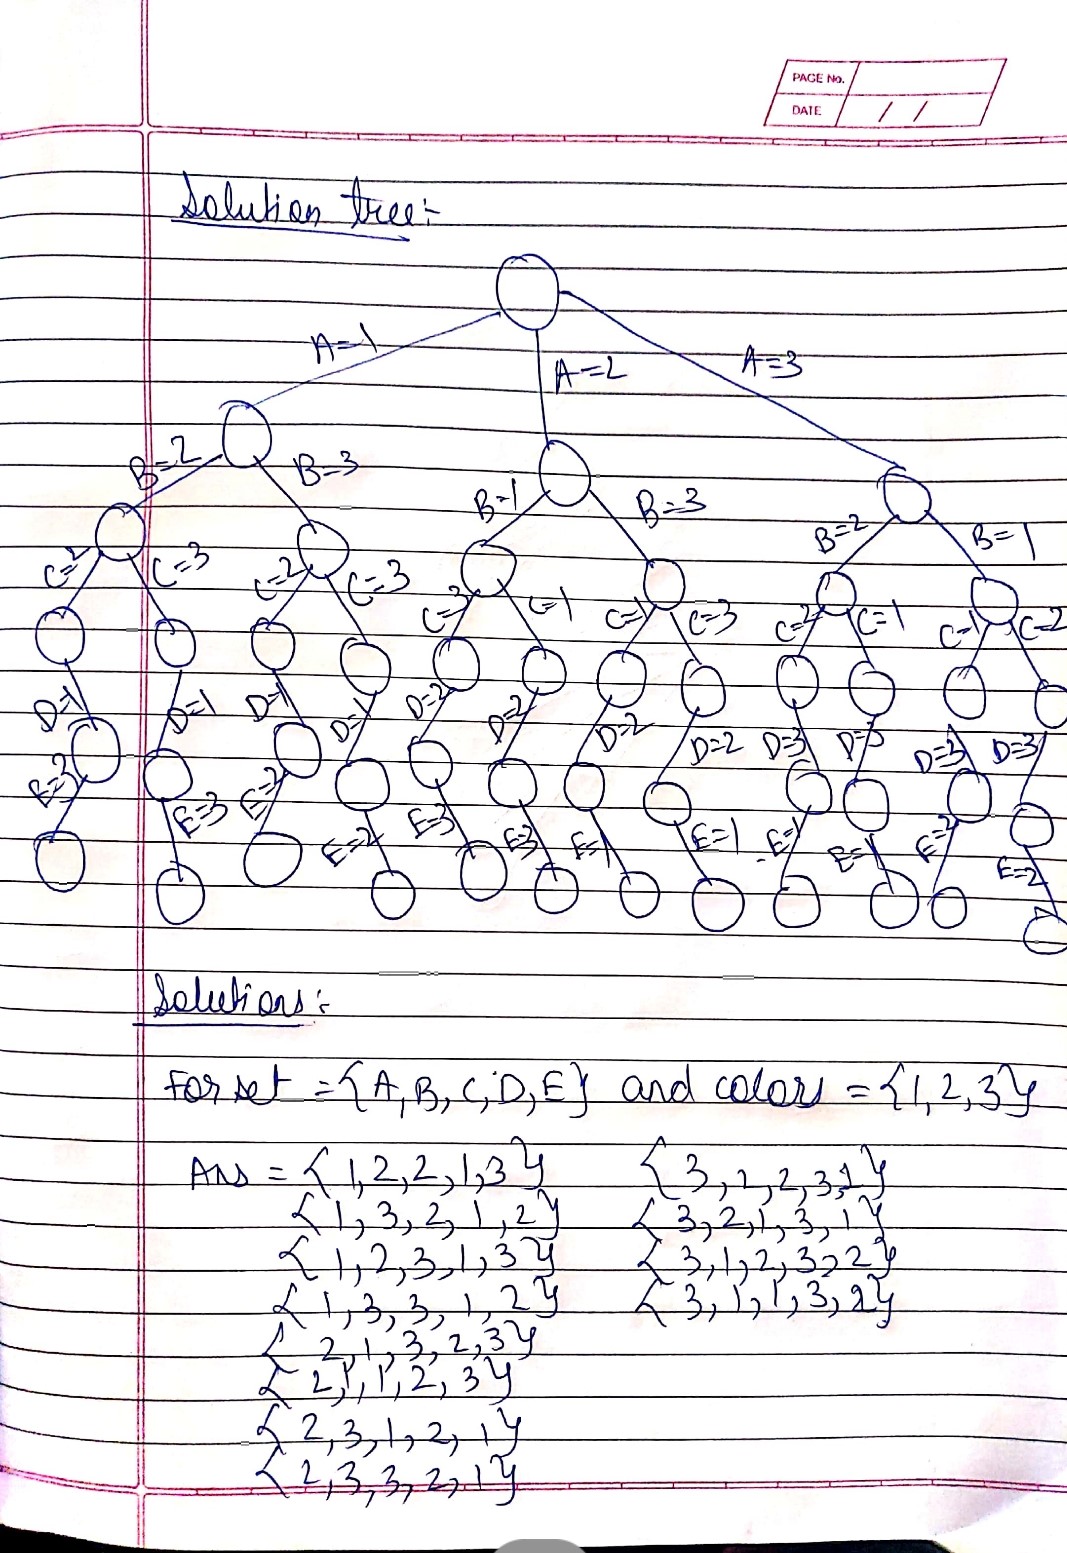 PAGE No.
DATE / /
Solution tree:-
A=1
A=2
A=3
B=2 B=3 B=1 B=3 B=2 B=1
C=2 C=3 C=2 C=3 C=3 C=1 C=1 C=3 C=2 C=1 C=1 C=2
D=1 D=1 D=1 D=1 D=2 D=2 D=2 D=2 D=3 D=3 D=3 D=3
E=3 E=3 E=2 E=2 E=3 E=3 E=1 E=1 E=1 E=1 E=2 E=2
Solutions:-
For set = {A, B, C, D, E} and colors = {1, 2, 3}
Ans = { 1,2,2,1,3} { 3,2,2,3,1}
{ 1,3,2,1,2} { 3,2,1,3,1}
{ 1,2,3,1,3} { 3,1,2,3,2}
{ 1,3,3,1,2} { 3,1,1,3,2}
{ 2,1,3,2,3}
{ 2,1,1,2,3}
{ 2,3,1,2,1}
{ 2,3,3,2,1}